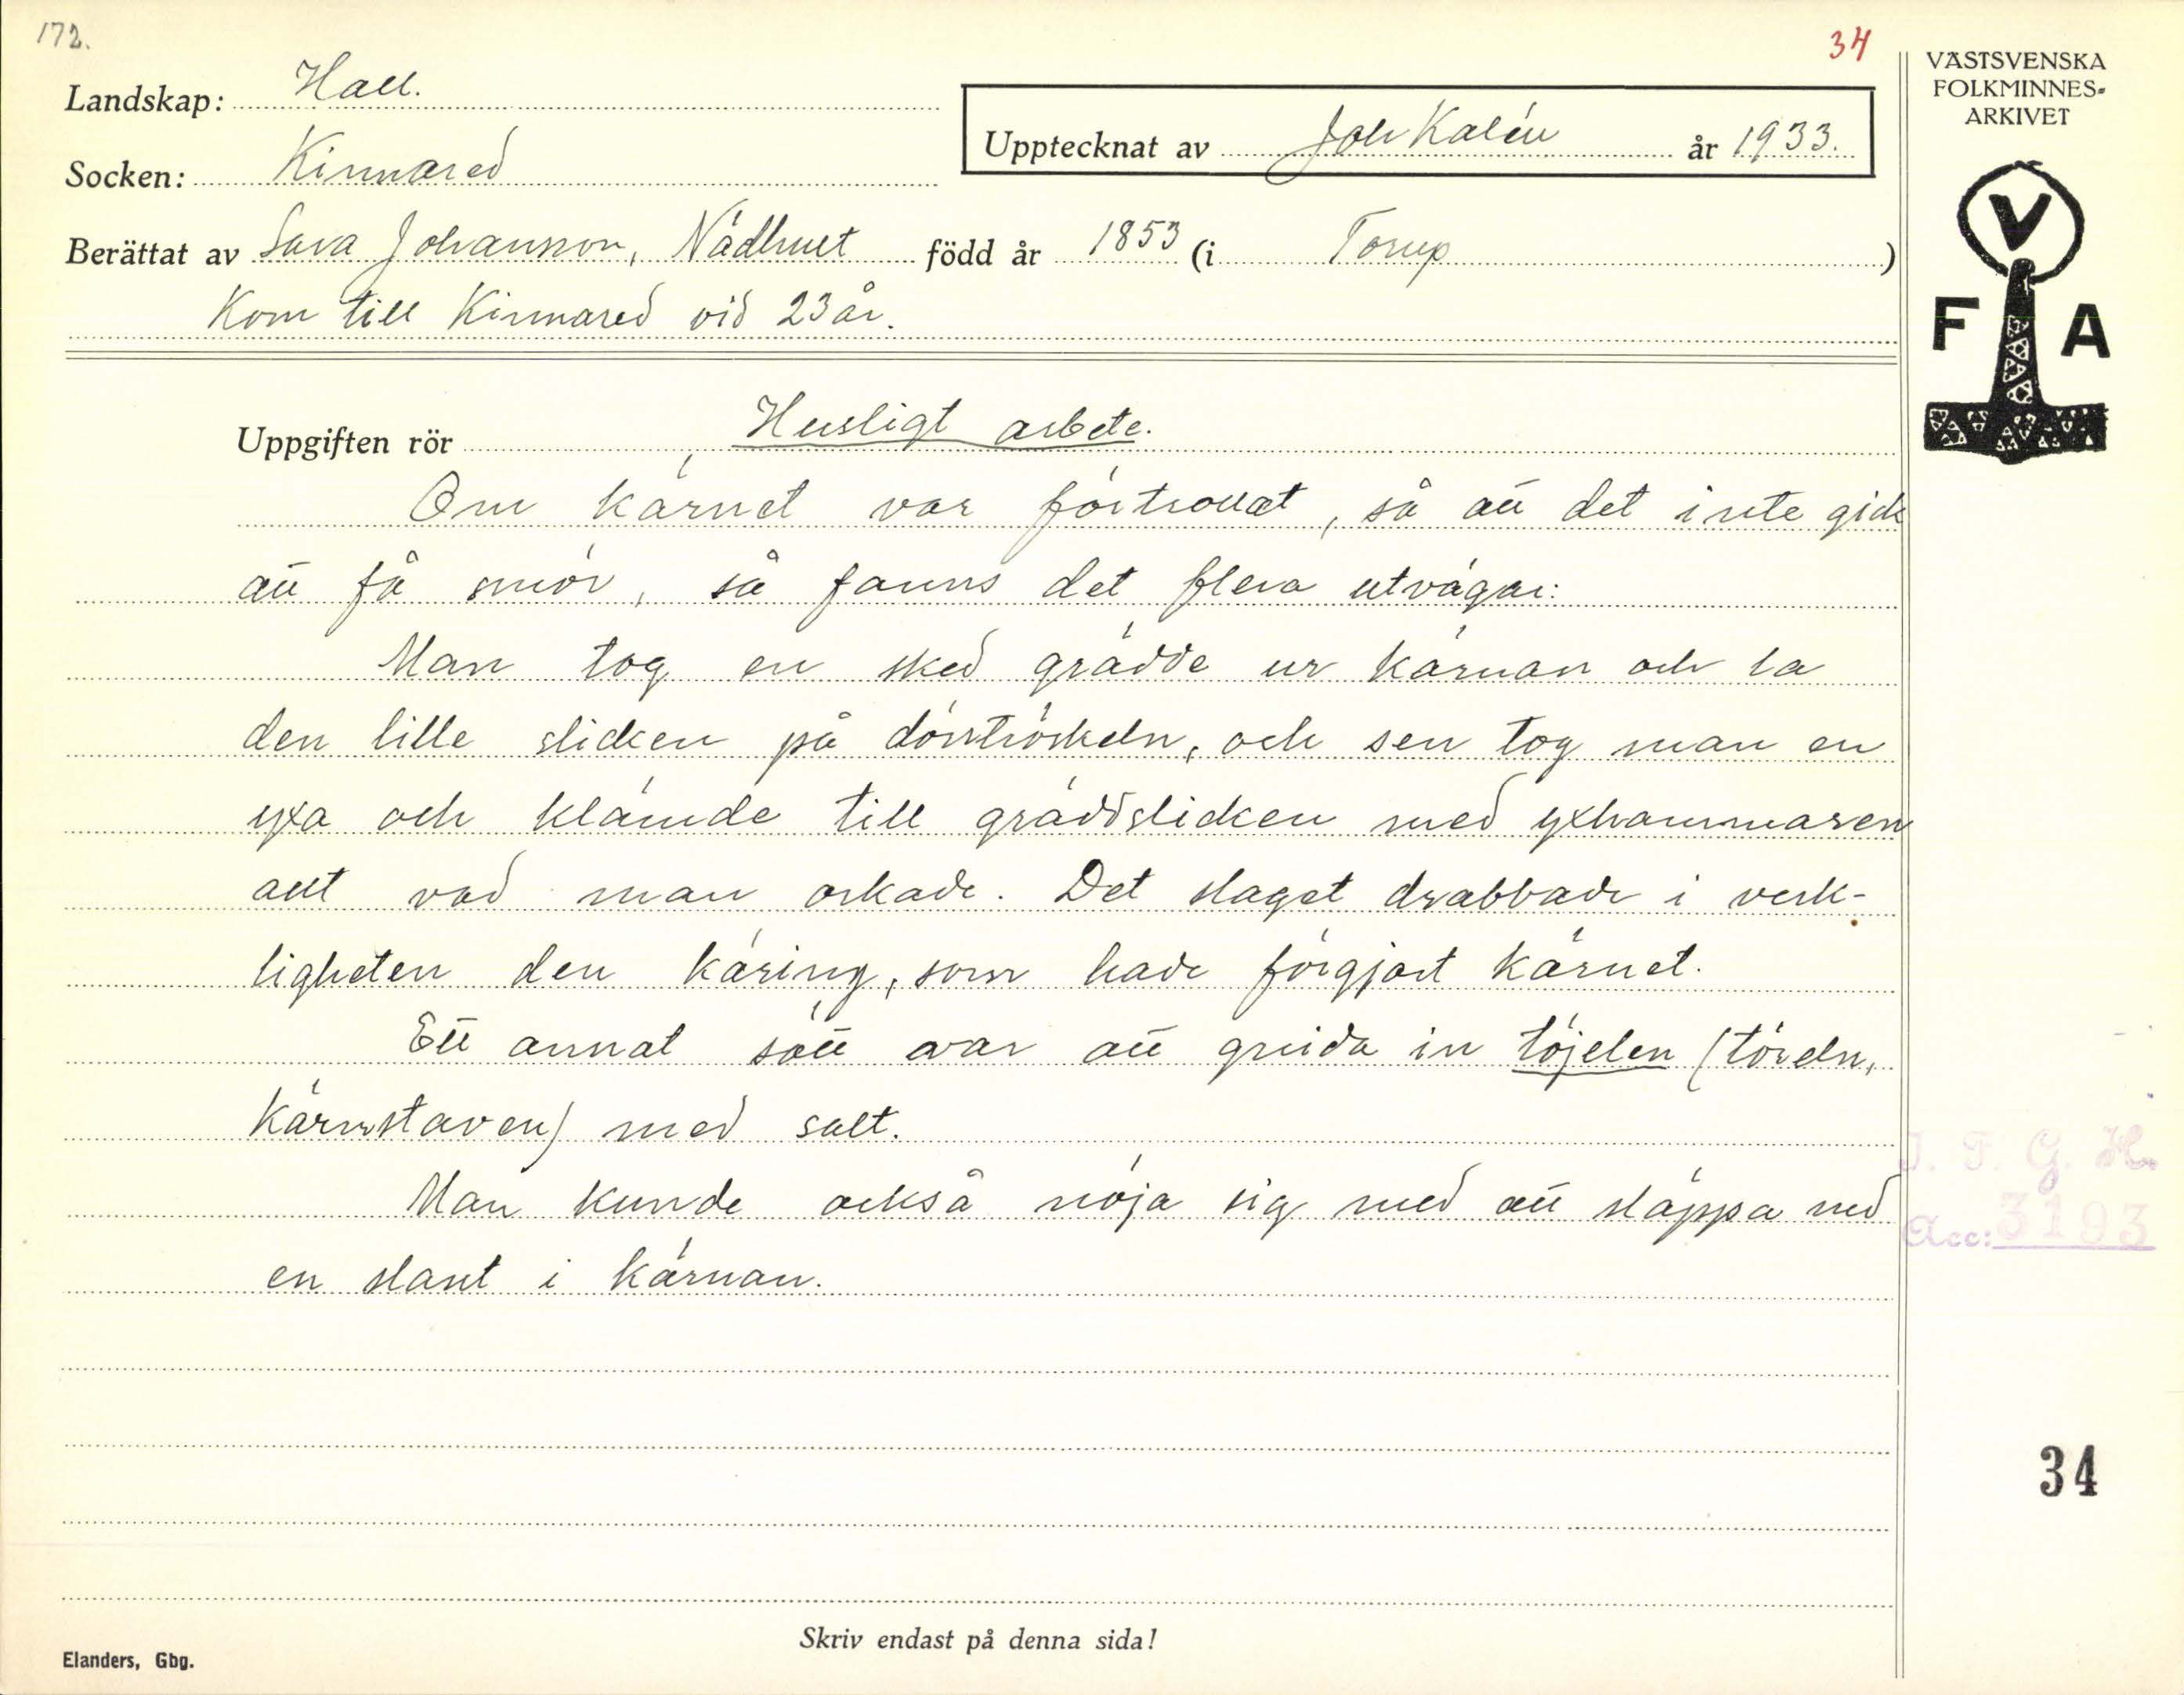 172.
34
Landskap: Hall.
Upptecknat av Joh Kalén år 1933.
VÄSTSVENSKA
FOLKMINNES-
ARKIVET
Socken: Kinnared
Berättat av Sara Johansson, Nädhult född år 1853 (i Torup)
Kom till Kinnared vid 23 år.
V
F A
Uppgiften rör Husligt arbete.
Om kärnet var förtrollat, så att det inte gick
att få smör, så fanns det flera utvägar:
Man tog en sked grädde ur kärnan och la
den lille slicken på dörtröskeln, och sen tog man en
yxa och klämde till gräddslicken med yxhammaren
allt vad man orkade. Det slaget drabbade i verk-
ligheten den käring, som hade förgjort kärnet.
Ett annat sätt var att gnida in töjelen (töreln,
kärnstaven) med salt.
Man kunde också nöja sig med att släppa ned
en slant i kärnan.
I. F. G. H.
Acc: 3193
34
Skriv endast på denna sida!
Elanders, Gbg.